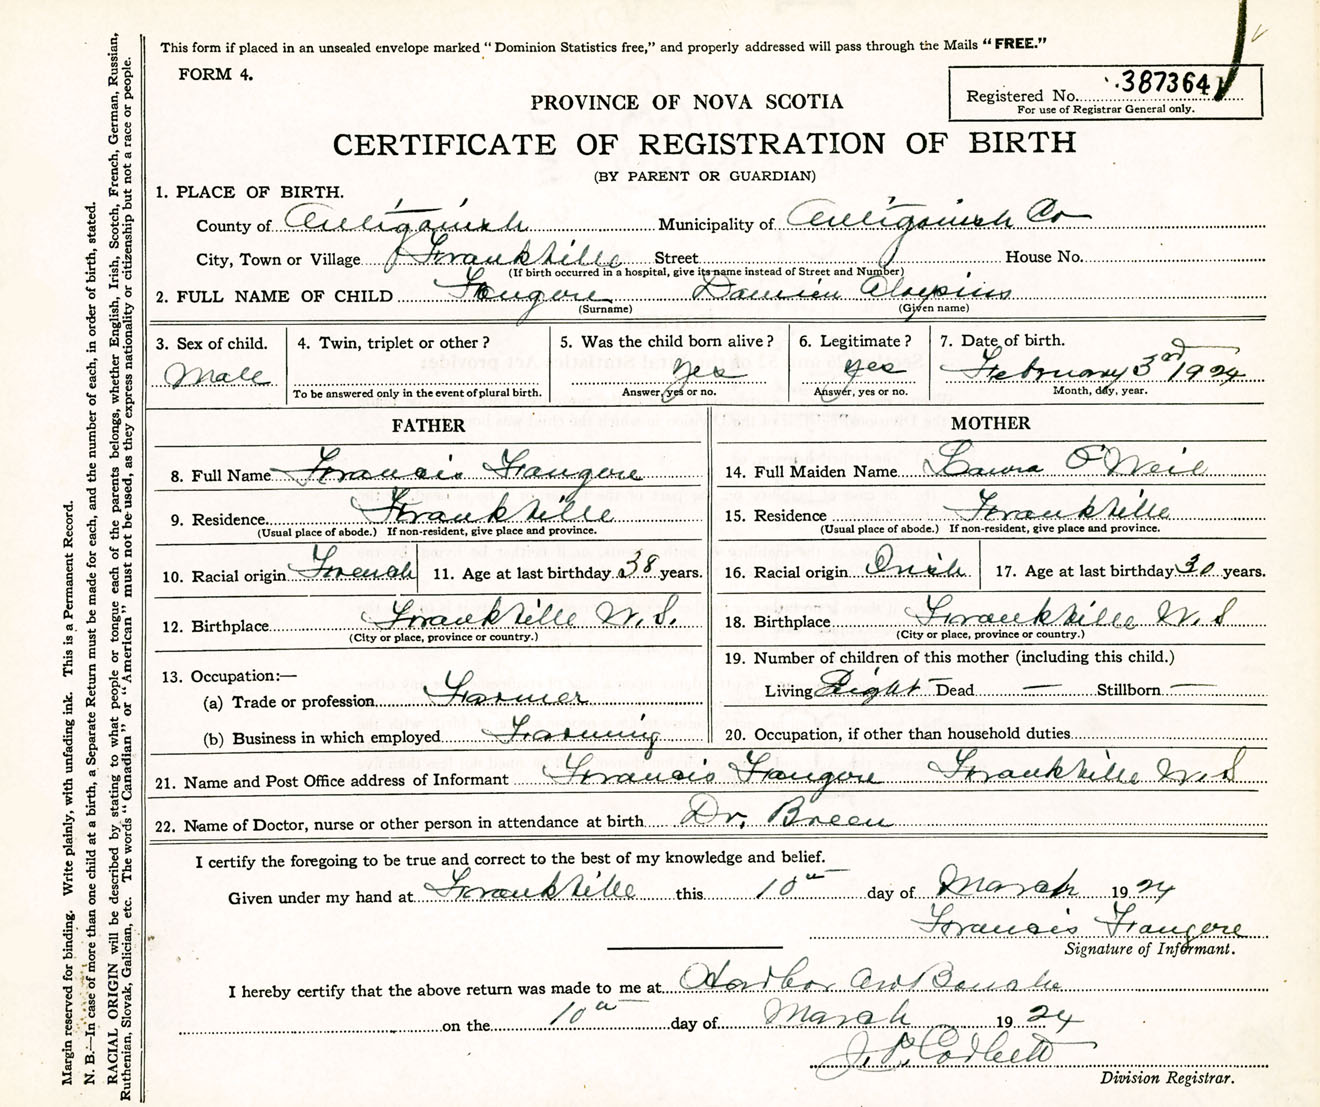 This form if placed in an unsealed envelope marked "Dominion Statistics free," and properly addressed will pass through the Mails "FREE."
FORM 4.
Registered No. 387364
For use of Registrar General only.
PROVINCE OF NOVA SCOTIA
CERTIFICATE OF REGISTRATION OF BIRTH
(BY PARENT OR GUARDIAN)
1. PLACE OF BIRTH.
County of Antigonish Municipality of Antigonish Co
City, Town or Village Frankville Street House No.
(If birth occurred in a hospital, give its name instead of Street and Number)
2. FULL NAME OF CHILD Fougere Damien Aloysius
(Surname) (Given name)
3. Sex of child. 4. Twin, triplet or other? 5. Was the child born alive? 6. Legitimate? 7. Date of birth.
Male Yes Yes February 3rd 1924
To be answered only in the event of plural birth. Answer, yes or no. Answer, yes or no. Month, day, year.
FATHER MOTHER
8. Full Name Francis Fougere 14. Full Maiden Name Laura O'Neil
9. Residence Frankville 15. Residence Frankville
(Usual place of abode.) If non-resident, give place and province. (Usual place of abode.) If non-resident, give place and province.
10. Racial origin French 11. Age at last birthday 38 years. 16. Racial origin Irish 17. Age at last birthday 30 years.
12. Birthplace Frankville N.S. 18. Birthplace Frankville N.S
(City or place, province or country.) (City or place, province or country.)
13. Occupation:— 19. Number of children of this mother (including this child.)
(a) Trade or profession Farmer Living Eight Dead — Stillborn —
(b) Business in which employed Farming 20. Occupation, if other than household duties
21. Name and Post Office address of Informant Francis Fougere Frankville N.S
22. Name of Doctor, nurse or other person in attendance at birth Dr. Breen
I certify the foregoing to be true and correct to the best of my knowledge and belief.
Given under my hand at Frankville this 10th day of March 1924
Francis Fougere
Signature of Informant.
I hereby certify that the above return was made to me at Harbor au Bouche
on the 10th day of March 1924
J. P. Corbett
Division Registrar.
Margin reserved for binding. Write plainly, with unfading ink. This is a Permanent Record.
N. B.—In case of more than one child at a birth, a Separate Return must be made for each, and the number of each, in order of birth, stated.
RACIAL ORIGIN will be described by stating to what people or tongue each of the parents belongs, whether English, Irish, Scotch, French, German, Russian,
Ruthenian, Slovak, Galician, etc. The words "Canadian" or "American" must not be used, as they express nationality or citizenship but not a race or people.